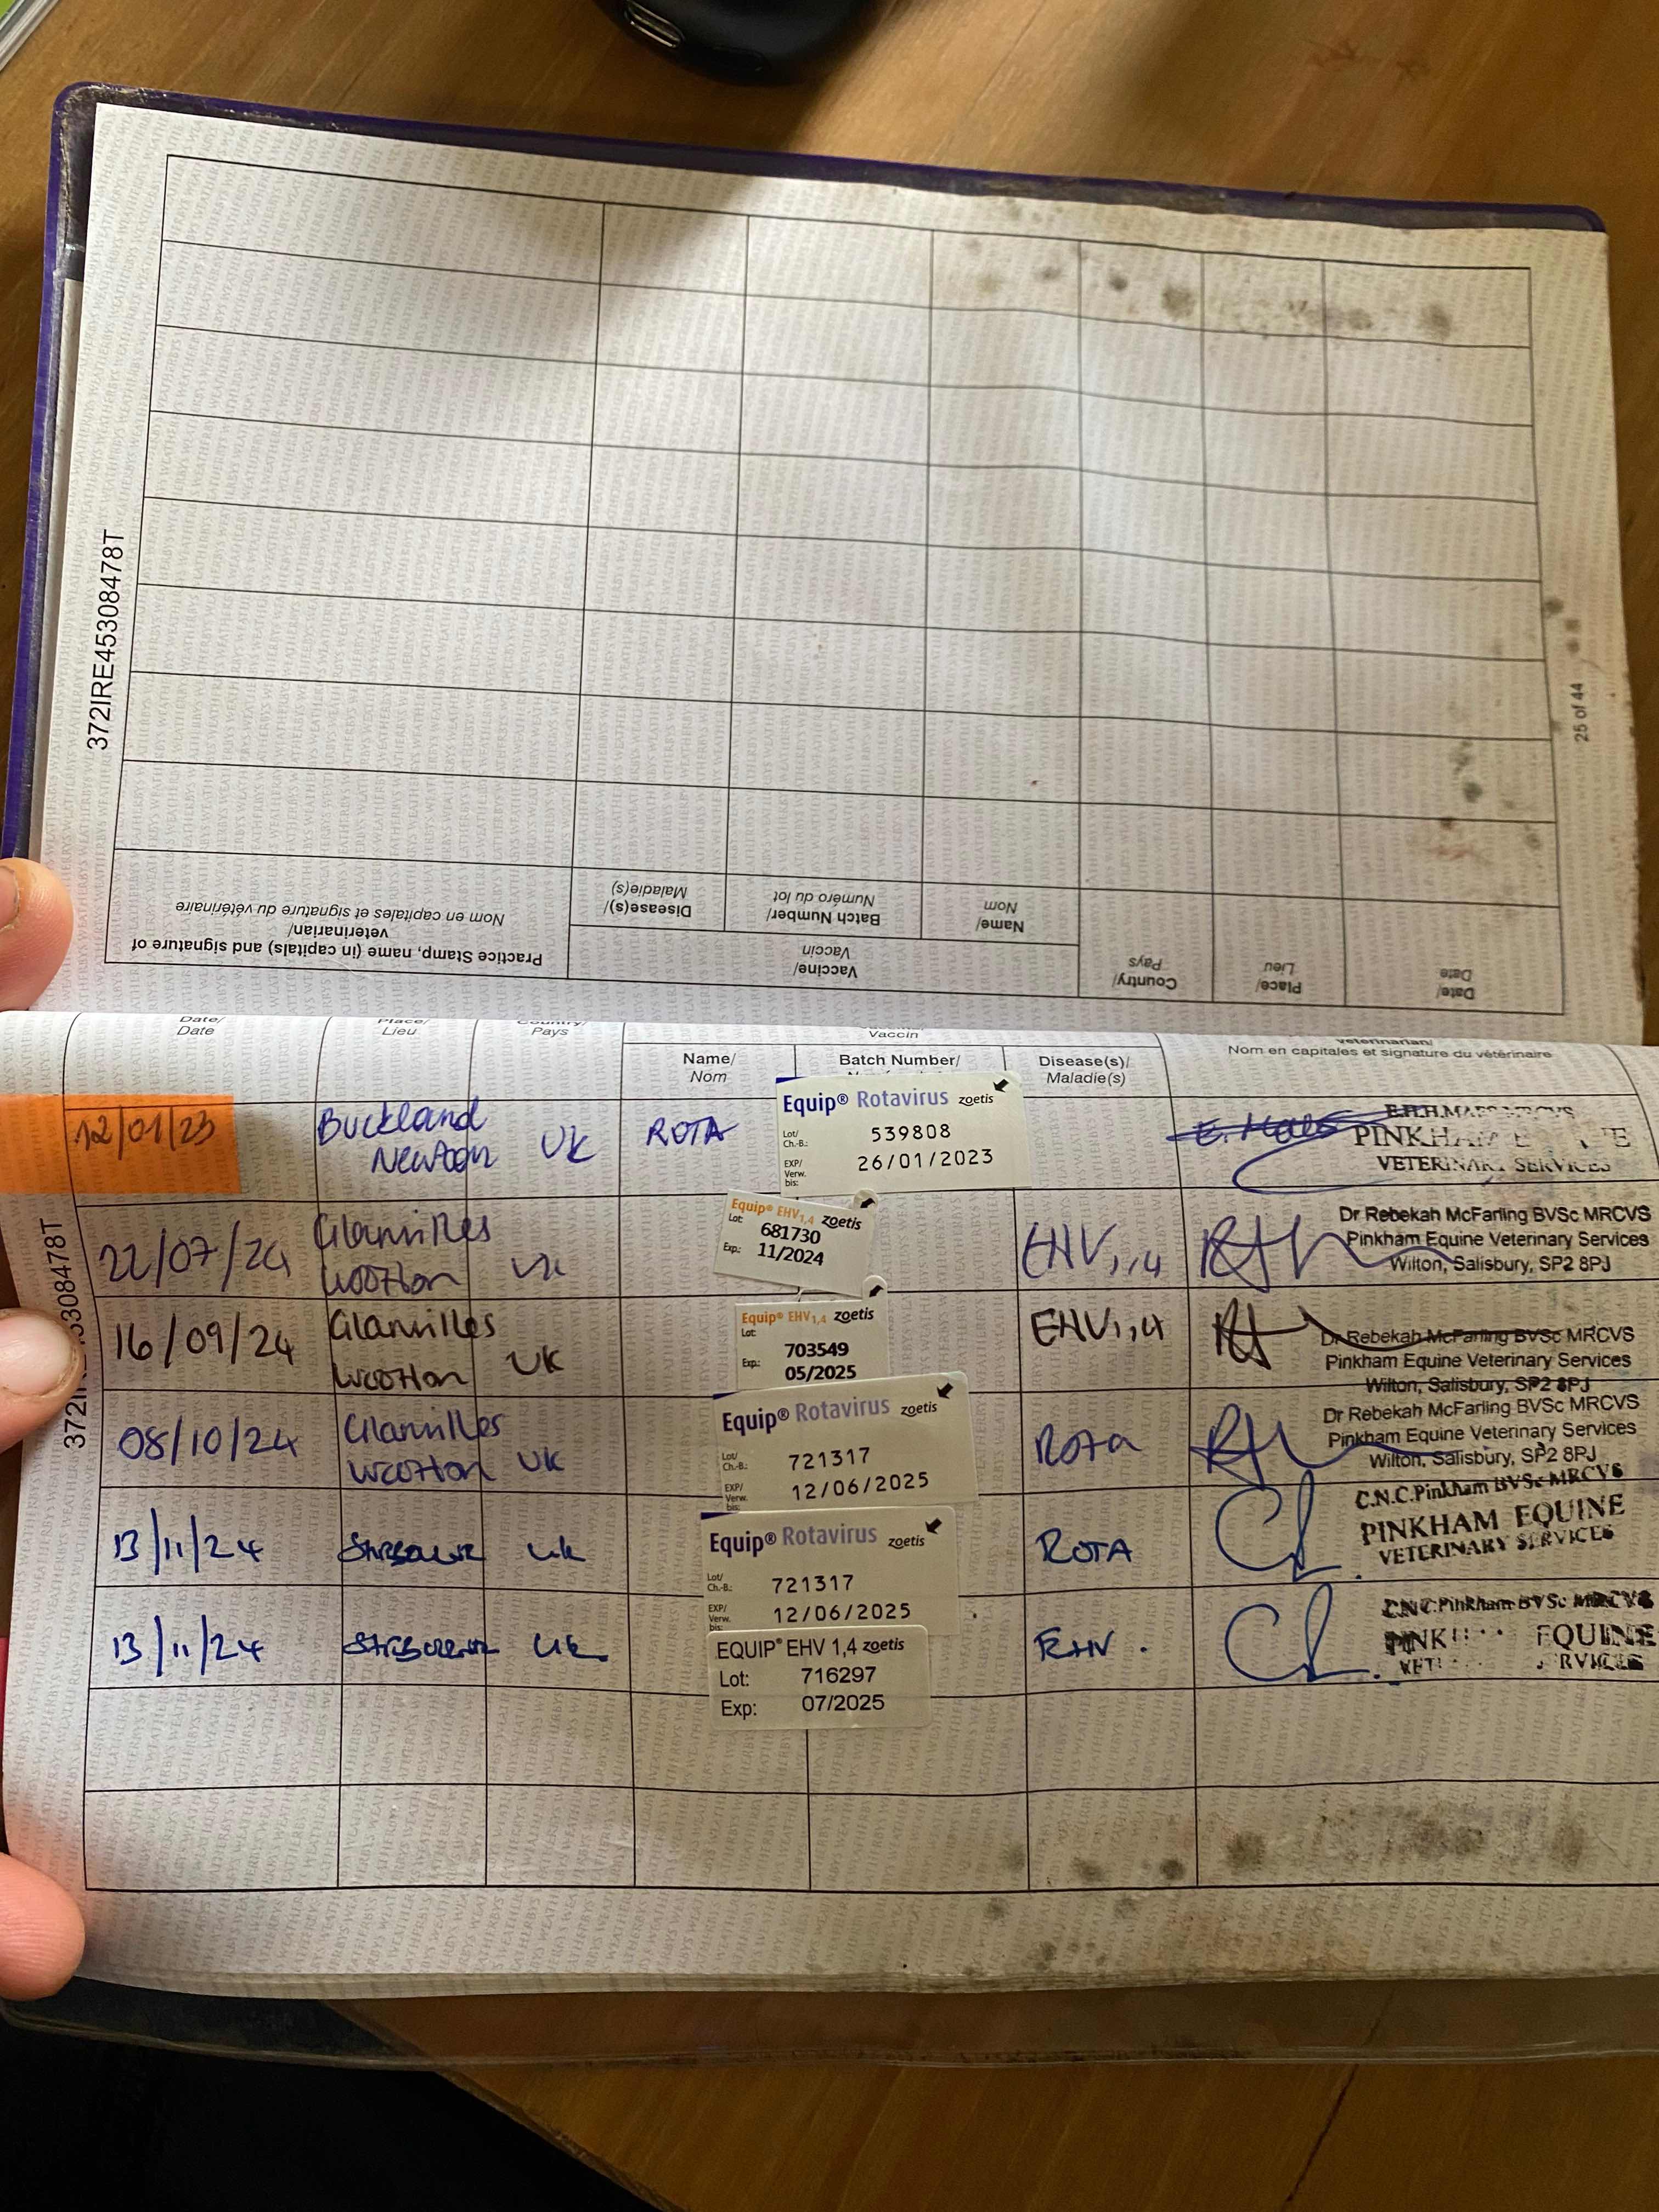 372IRE45308478T
25 of 44
Practice Stamp, name (in capitals) and signature of
veterinarian/
Nom en capitales et signature du vétérinaire
Disease(s)/
Maladie(s)
Batch Number/
Numéro du lot
Name/
Nom
Vaccine/
Vaccin
Country/
Pays
Place/
Lieu
Date/
Date
Date/
Date
Place/
Lieu
Country/
Pays
Vaccin
Name/
Nom
Batch Number/
Disease(s)/
Maladie(s)
veterinarian/
Nom en capitales et signature du vétérinaire
12/01/23
Buckland
Newton
UK
ROTA
Equip® Rotavirus zoetis
Lot/
Ch.-B.:
539808
EXP/
Verw.
bis:
26/01/2023
E. Maes
E.H.H.MAES MRCVS
PINKHAM E
VETERINARY SERVICES
22/07/24
Glanvilles
Wootton
UK
Equip® EHV1,4 zoetis
Lot:
681730
Exp.:
11/2024
EHV1,4
Dr Rebekah McFarling BVSc MRCVS
Pinkham Equine Veterinary Services
Wilton, Salisbury, SP2 8PJ
16/09/24
Glanvilles
Wootton
UK
Equip® EHV1,4 zoetis
Lot:
703549
Exp.:
05/2025
EHV1,4
Dr Rebekah McFarling BVSc MRCVS
Pinkham Equine Veterinary Services
Wilton, Salisbury, SP2 8PJ
08/10/24
Glanvilles
Wootton
UK
Equip® Rotavirus zoetis
Lot/
Ch.-B.:
721317
EXP/
Verw.
bis:
12/06/2025
Rota
Dr Rebekah McFarling BVSc MRCVS
Pinkham Equine Veterinary Services
Wilton, Salisbury, SP2 8PJ
13/11/24
UK
Equip® Rotavirus zoetis
Lot/
Ch.-B.:
721317
EXP/
Verw.
bis:
12/06/2025
ROTA
C.N.C.Pinkham BVSc MRCVS
PINKHAM EQUINE
VETERINARY SERVICES
13/11/24
UK
EQUIP® EHV 1,4 zoetis
Lot: 716297
Exp: 07/2025
EHV.
C.N.C.Pinkham BVSc MRCVS
PINK EQUINE
VET RVICES